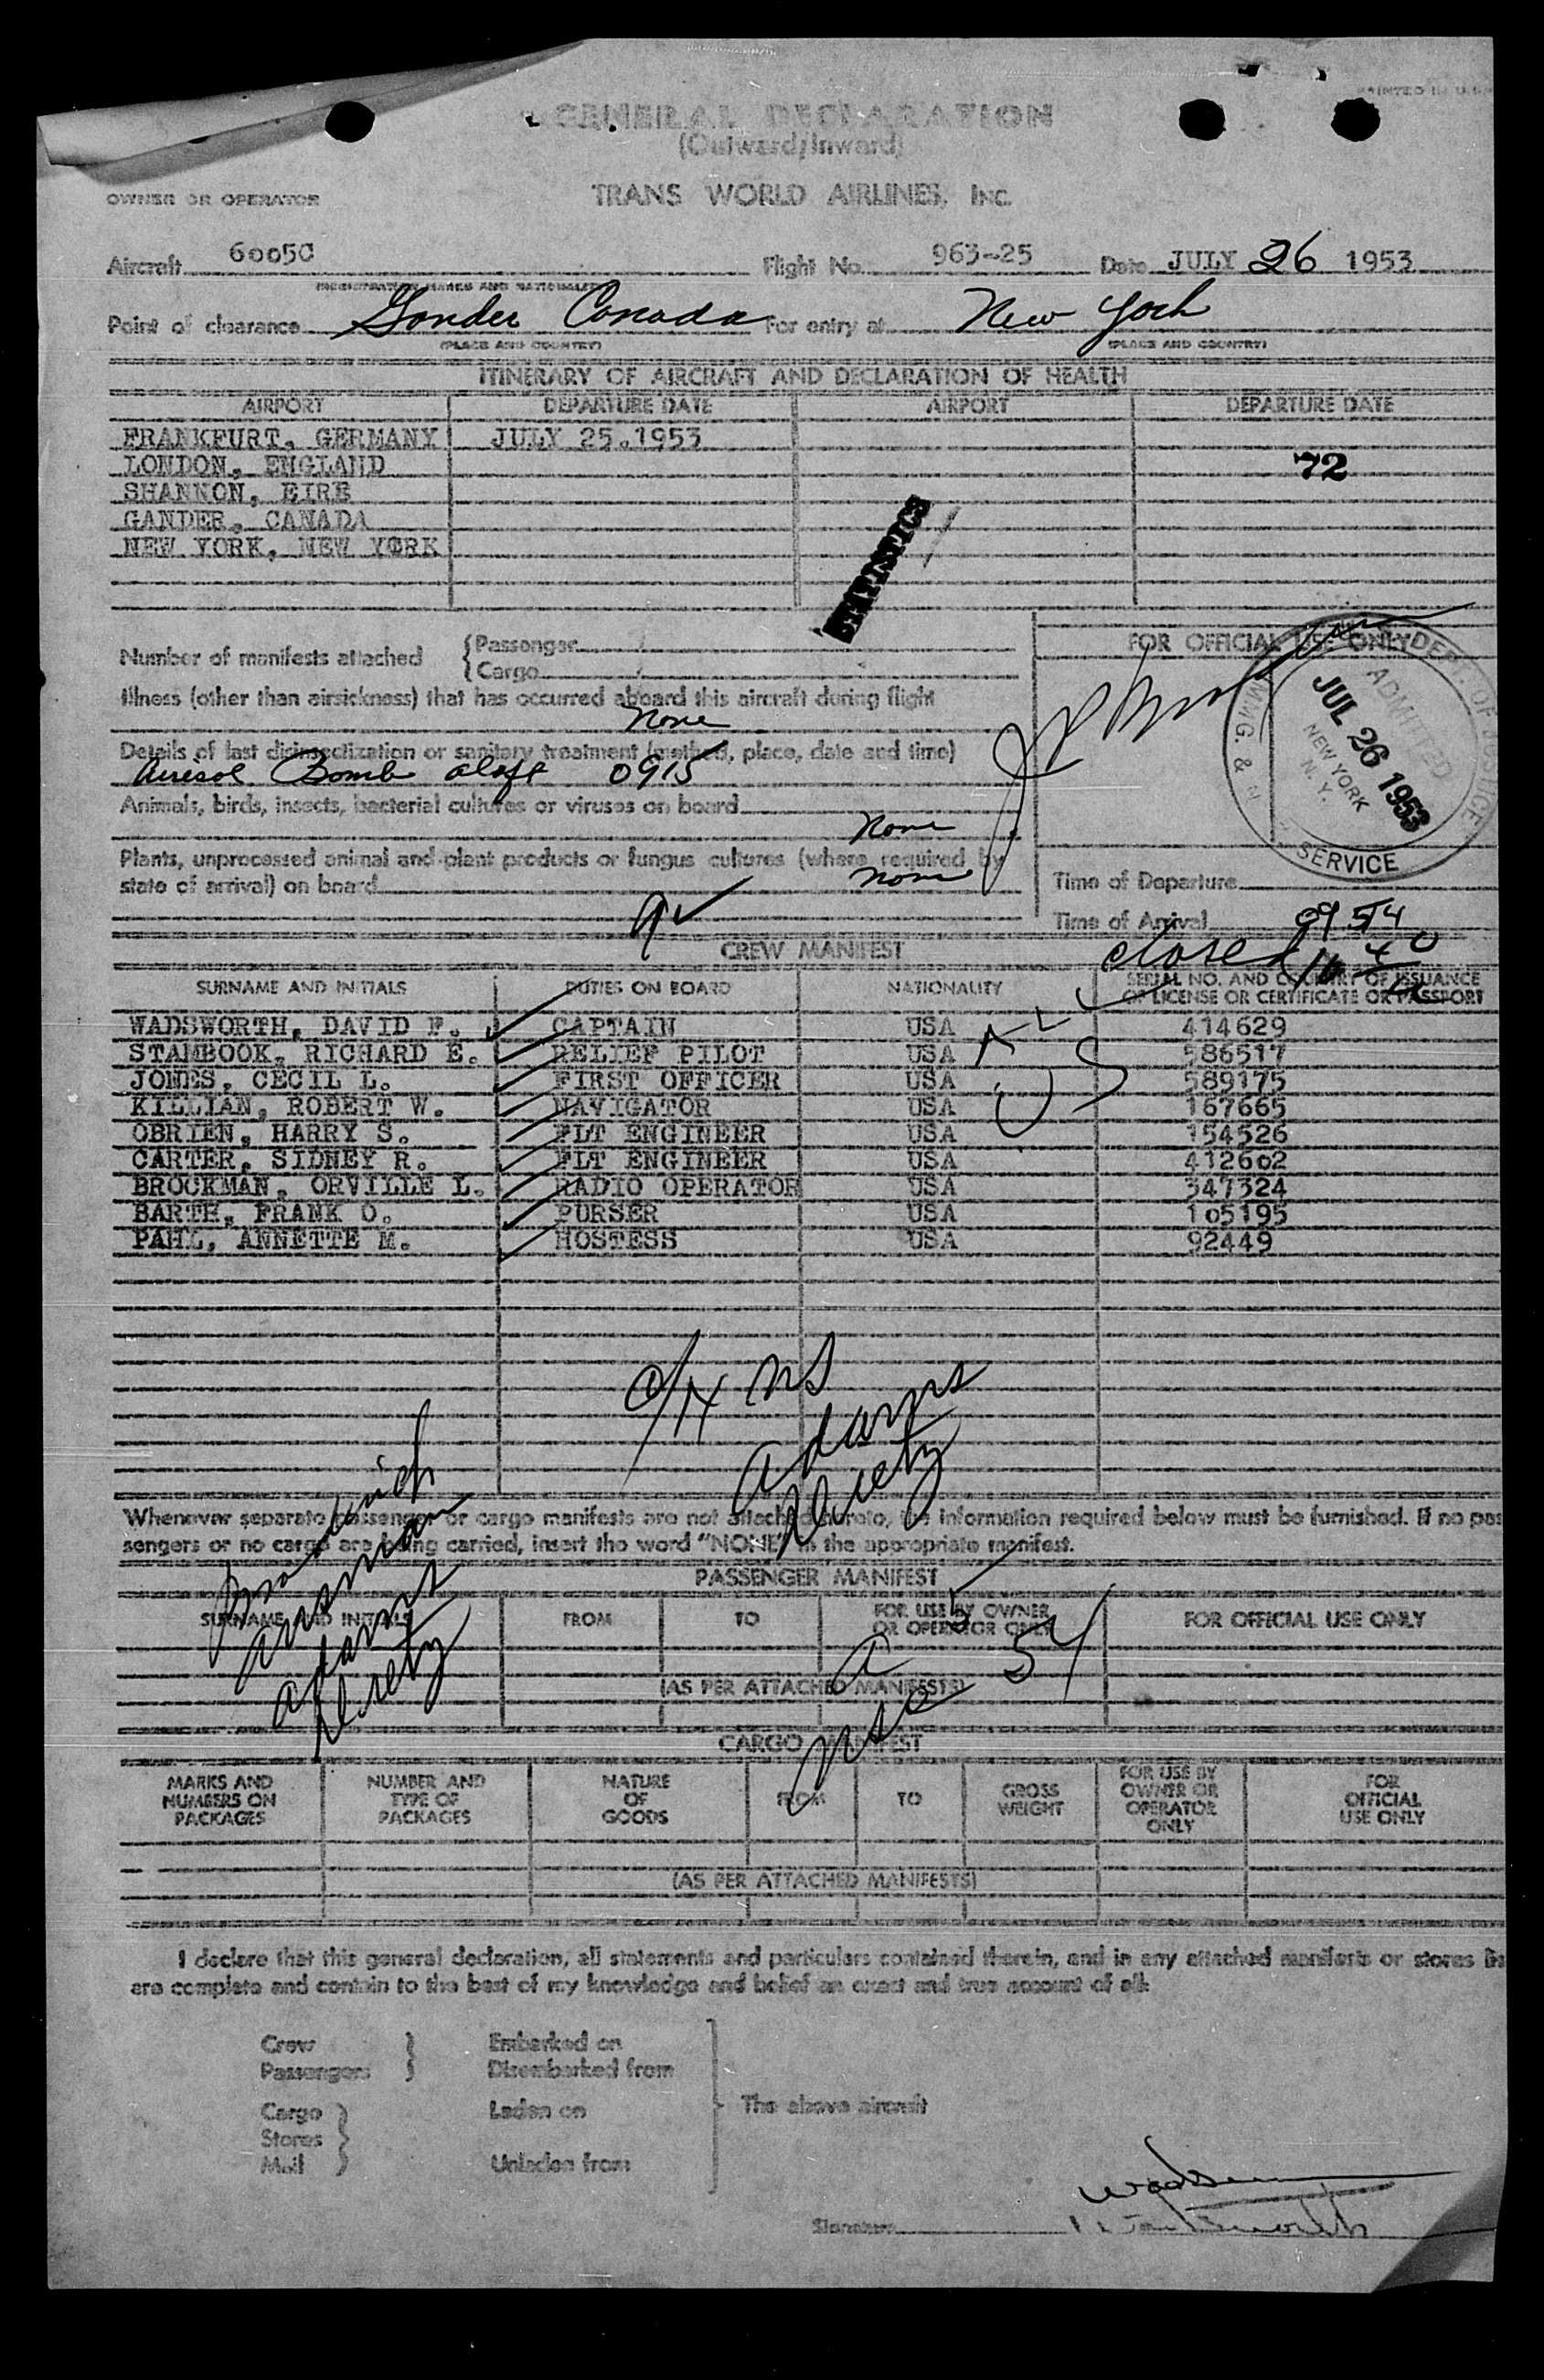 PRINTED IN U.S.A.
GENERAL DECLARATION
(Outward/Inward)
OWNER OR OPERATOR TRANS WORLD AIRLINES, INC.
Aircraft 6005C Flight No. 963-25 Date JULY 26 1953
(REGISTRATION MARKS AND NATIONALITY)
Point of clearance Gander Canada For entry at New York
(PLACE AND COUNTRY) (PLACE AND COUNTRY)
ITINERARY OF AIRCRAFT AND DECLARATION OF HEALTH
AIRPORT DEPARTURE DATE AIRPORT DEPARTURE DATE
FRANKFURT, GERMANY JULY 25.1953
LONDON, ENGLAND 72
SHANNON, EIRE
GANDER, CANADA
NEW YORK, NEW YORK
STATISTICS
Number of manifests attached {Passenger
{Cargo
FOR OFFICIAL USE ONLY
DEPT. OF JUSTICE
IMMIG. & N
SERVICE
ADMITTED
JUL 26 1953
NEW YORK
N. Y.
Illness (other than airsickness) that has occurred aboard this aircraft during flight
None
Details of last disinsectization or sanitary treatment (method, place, date and time)
Aerisol Bomb aloft 0915
Animals, birds, insects, bacterial cultures or viruses on board
None
Plants, unprocessed animal and plant products or fungus cultures (where required by
state of arrival) on board None
Time of Departure
Time of Arrival 0954
closed
CREW MANIFEST
SURNAME AND INITIALS DUTIES ON BOARD NATIONALITY SERIAL NO. AND COUNTRY OF ISSUANCE
OF LICENSE OR CERTIFICATE OR PASSPORT
WADSWORTH, DAVID F. CAPTAIN USA 414629
STAMBOOK, RICHARD E. RELIEF PILOT USA 586517
JONES, CECIL L. FIRST OFFICER USA 589175
KILLIAN, ROBERT W. NAVIGATOR USA 167665
OBRIEN, HARRY S. FLT ENGINEER USA 154526
CARTER, SIDNEY R. FLT ENGINEER USA 412602
BROCKMAN, ORVILLE L. RADIO OPERATOR USA 347324
BARTH, FRANK O. PURSER USA 105195
PAHL, ANNETTE M. HOSTESS USA 92449
Adams
Whenever separate passenger or cargo manifests are not attached hereto, the information required below must be furnished. If no pas
sengers or no cargo are being carried, insert the word "NONE" in the appropriate manifest.
PASSENGER MANIFEST
SURNAME AND INITIALS FROM TO FOR USE BY OWNER
OR OPERATOR ONLY FOR OFFICIAL USE ONLY
Adams
54
(AS PER ATTACHED MANIFESTS)
CARGO MANIFEST
MARKS AND
NUMBERS ON
PACKAGES NUMBER AND
TYPE OF
PACKAGES NATURE
OF
GOODS FROM TO GROSS
WEIGHT FOR USE BY
OWNER OR
OPERATOR
ONLY FOR
OFFICIAL
USE ONLY
(AS PER ATTACHED MANIFESTS)
I declare that this general declaration, all statements and particulars contained therein, and in any attached manifests or stores lis
are complete and contain to the best of my knowledge and belief an exact and true account of all:
Crew } Embarked on
Passengers } Disembarked from
Cargo } Laden on The above aircraft
Stores }
Mail } Unladen from
Signature Wadsworth